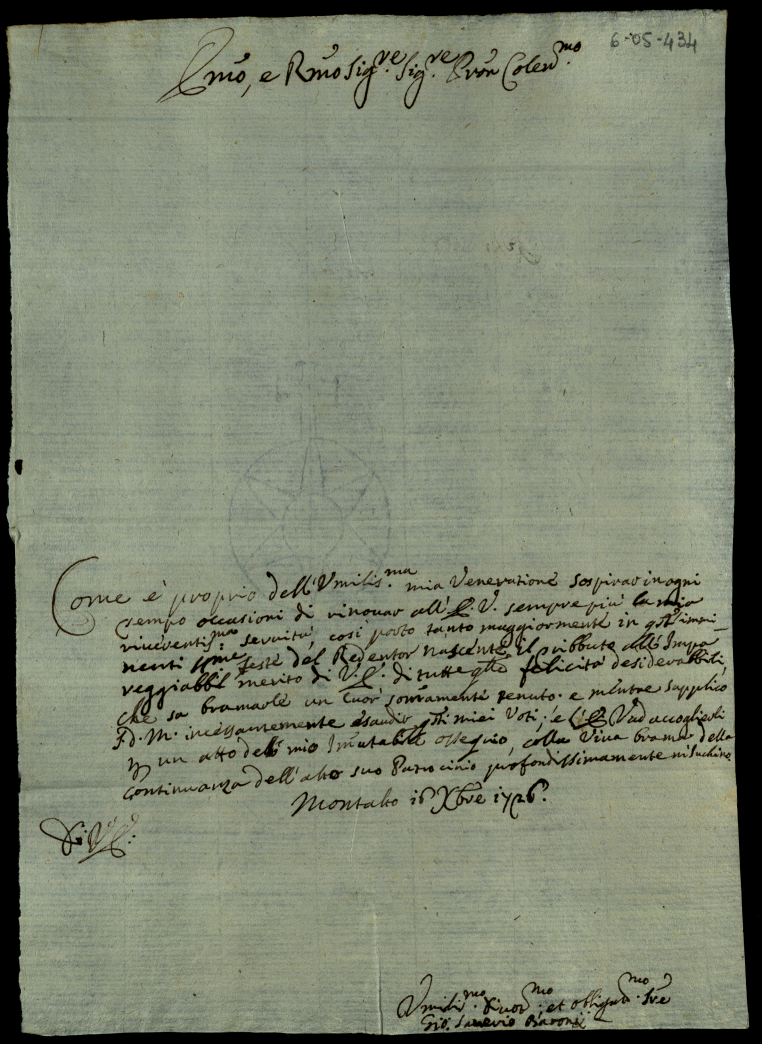 6-05-434
Emo, e Rmo Sigre. Sigre. Pron Colendmo.
Come è proprio dell'Umilisma. mia Veneratione sospirar in ogni
tempo occasioni di rinovar all'E.V. sempre più la mia
riverentisma. servitù, così porto tanto maggiormente in qste immi-
nenti Sme feste del Redentor nascente il tributo alle Impa
reggiabbil merito di V.E. di tutte qlle felicità desiderabbili,
che sa bramarle un Cuor sommamente tenuto. e mentre supplico
S.D.M. incessantemente esaudir qsti miei Voti; e l'E.V. ad accoglierli
p un atto del mio Immutabill ossequio, colla Viva brama della
Continuanza dell'alto suo Patrocinio profondissimamente m'inchino.
Montalto 16 Xbre 1726.
Di V.E.
Umilismo. Divotmo. et obligatmo. Sre
Gio. Saverio Baroni